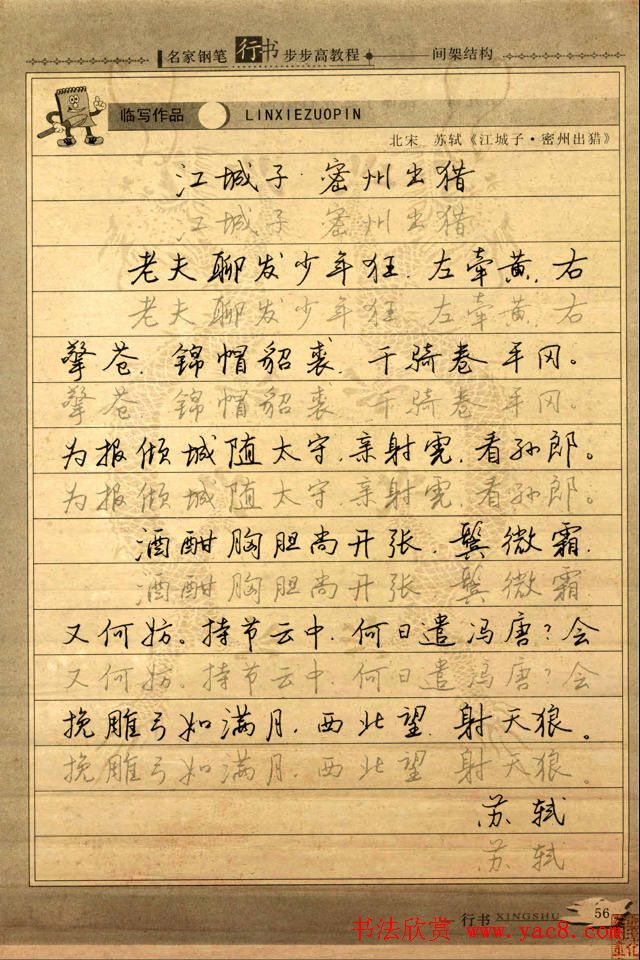 名家钢笔 行书 步步高教程 间架结构
临写作品 LINXIEZUOPIN
北宋 苏轼《江城子·密州出猎》
江城子·密州出猎
江城子 密州出猎
老夫聊发少年狂,左牵黄,右
老夫聊发少年狂,左牵黄,右
擎苍,锦帽貂裘,千骑卷平冈。
擎苍,锦帽貂裘,千骑卷平冈。
为报倾城随太守,亲射虎,看孙郎。
为报倾城随太守,亲射虎,看孙郎。
酒酣胸胆尚开张,鬓微霜,
酒酣胸胆尚开张,鬓微霜,
又何妨。持节云中,何日遣冯唐?会
又何妨。持节云中,何日遣冯唐?会
挽雕弓如满月,西北望,射天狼。
挽雕弓如满月,西北望,射天狼。
苏轼
苏轼
行书 XINGSHU 56
书法欣赏 www.yac8.com